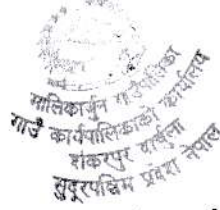 मालिकार्जुन गाउँपालिका
गाउँ कार्यपालिकाको कार्यालय
शंकरपुर दार्चुला
सुदूरपश्चिम प्रदेश नेपाल